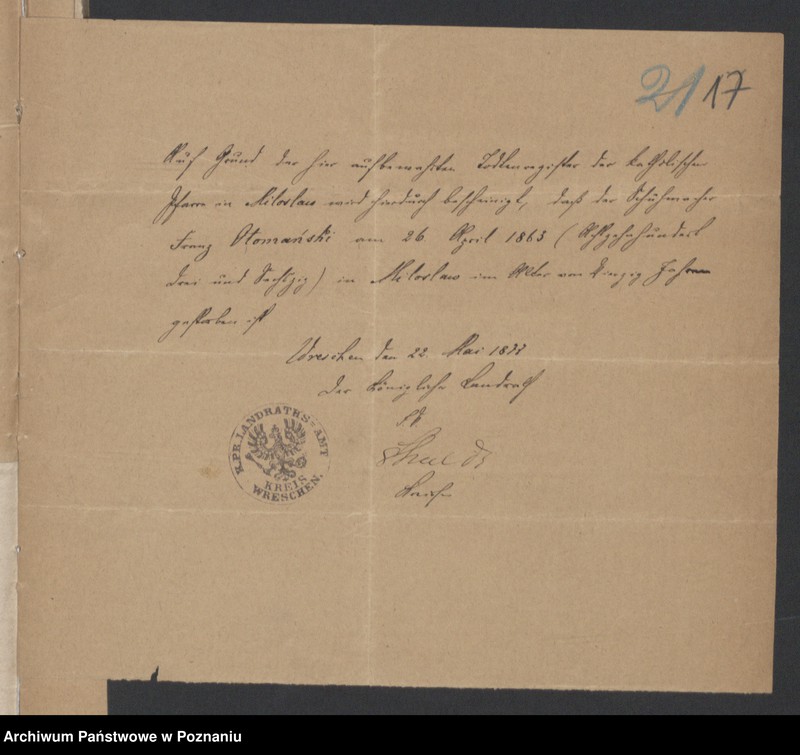 21 17
Auf Grund der hier aufbewahrten Todtenregister der katholischen
Pfarre in Miloslaw wird hierdurch bescheinigt, daß der Schuhmacher
Franz Otomański am 26. April 1863 (Achtzehnhundert
drei und Sechszig) in Miloslaw im Alter von Jahren
gestorben ist
Wreschen den 22. Mai
Der Königliche Landrath
K.PR. LANDRATHS-AMT
KREIS
WRESCHEN.
Archiwum Państwowe w Poznaniu